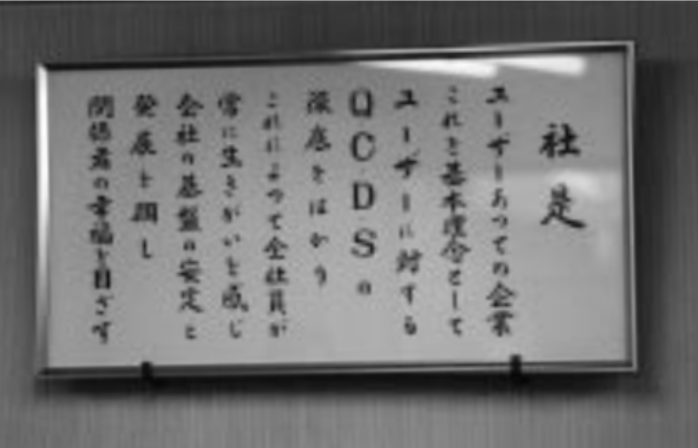 社是
ユーザーあっての企業
これを基本理念として
ユーザーに対する
QCDSの
深底をはかり
これによって全社員が
常に生きがいを感じ
会社の基盤の安定と
発展を図し
関係者の幸福を目ざす